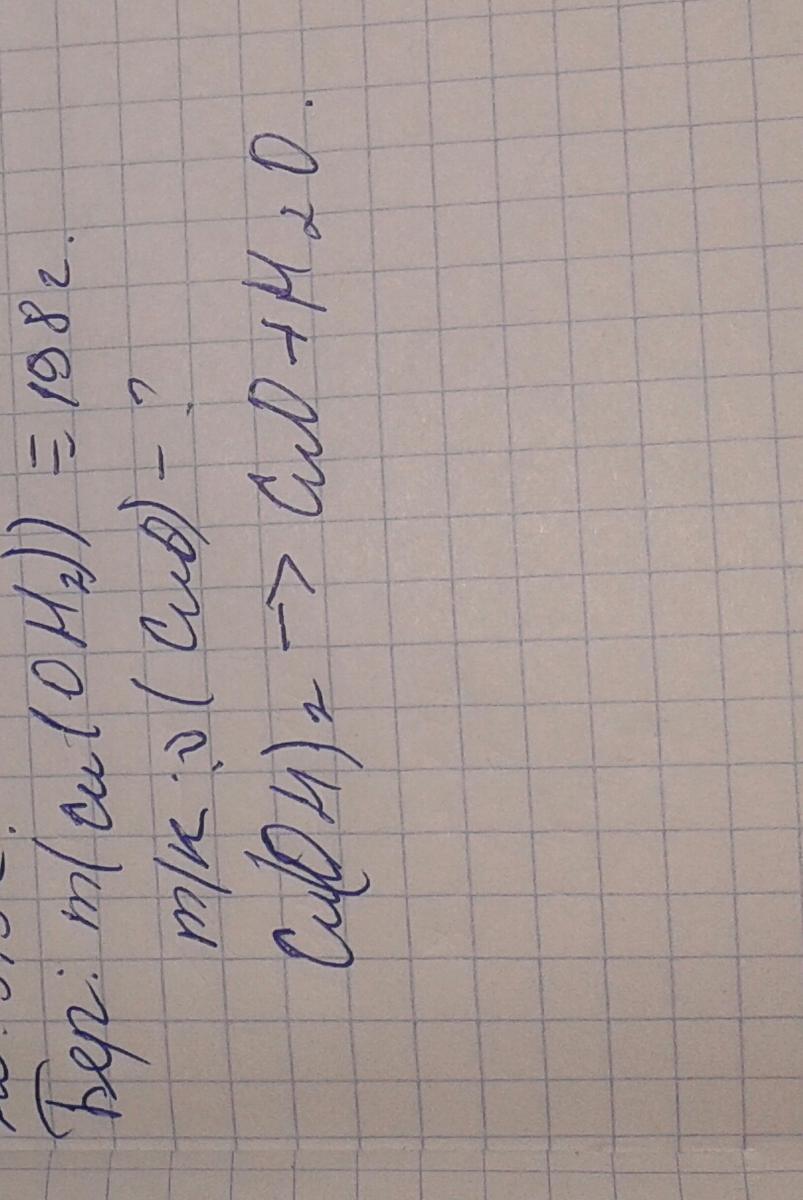 Бер: m(Cu(OH₂)) = 198г.
m/к: ν(CuO) - ?
Cu(OH)₂ -> CuO + H₂O.